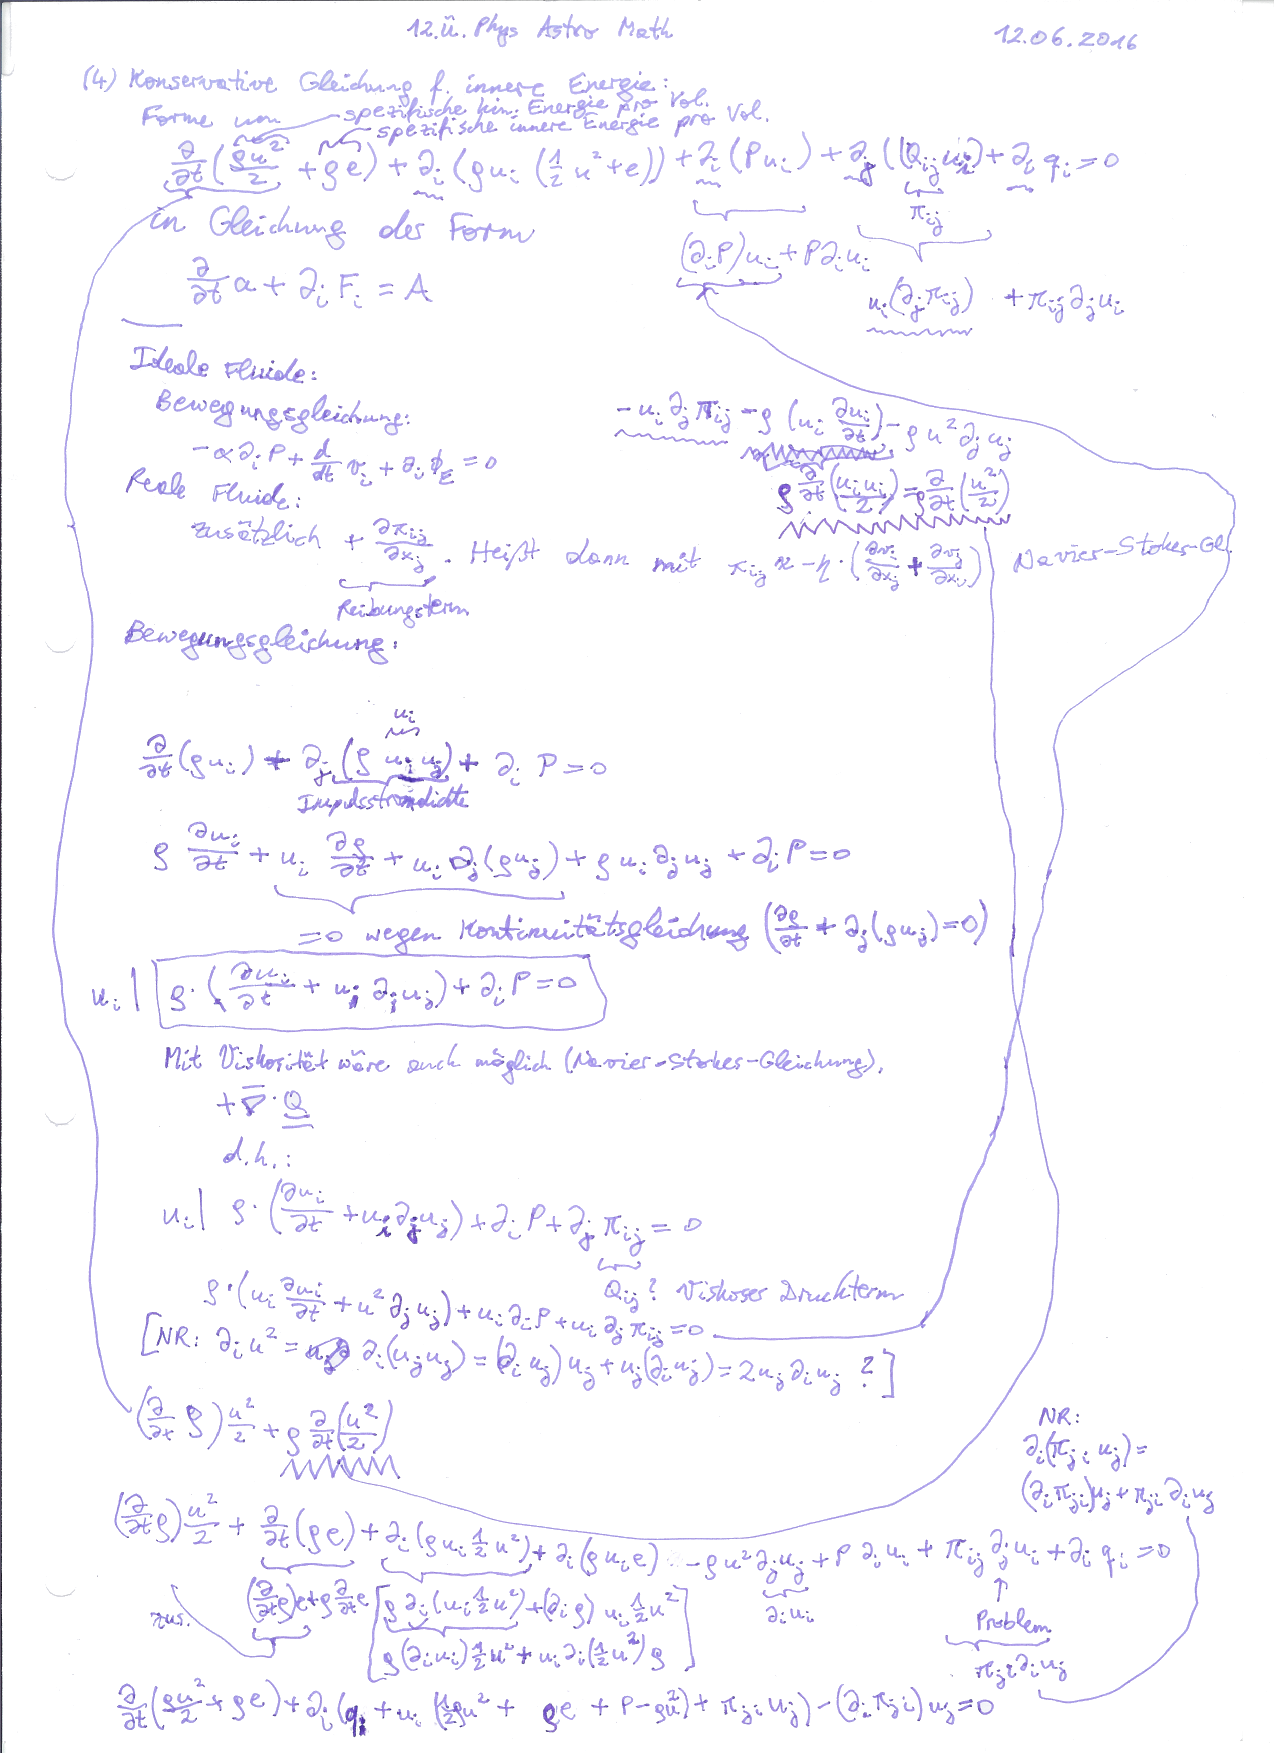 12.Ü. Phys Astro Math 12.06.2016
(4) Konservative Gleichung f. innere Energie:
Forme um spezifische kin. Energie pro Vol.
spezifische innere Energie pro Vol.
∂/∂t (ρu²/2 + ρe) + ∂_i (ρu_i (1/2 u² + e)) + ∂_i (P u_i) + ∂_j (Q_ij u_i) + ∂_i q_i = 0
π_ij
in Gleichung der Form
(∂_i P) u_i + P ∂_i u_i
∂/∂t a + ∂_i F_i = A
u_i (∂_j π_ij) + π_ij ∂_j u_i
Ideale Fluide:
Bewegungsgleichung:
-u_i ∂_j π_ij - ρ (u_i ∂u_i/∂t) - ρ u² ∂_j u_j
-α ∂_i P + d/dt v_i + ∂_i ϕ_E = 0
ρ ∂/∂t (u_i u_i / 2) = ρ ∂/∂t (u²/2)
Reale Fluide:
zusätzlich + ∂π_ij/∂x_j . Heißt dann mit π_ij ≈ -η · (∂v_i/∂x_j + ∂v_j/∂x_i) Navier-Stokes-Gl.
Reibungsterm
Bewegungsgleichung:
u_i
∂/∂t (ρu_i) + ∂_j (ρ u_i u_j) + ∂_i P = 0
Impulsstromdichte
ρ ∂u_i/∂t + u_i ∂ρ/∂t + u_i ∂_j (ρu_j) + ρ u_i ∂_j u_j + ∂_i P = 0
= 0 wegen Kontinuitätsgleichung (∂ρ/∂t + ∂_j (ρu_j) = 0)
u_i | ρ · (∂u_i/∂t + u_i ∂_j u_j) + ∂_i P = 0
Mit Viskosität wäre auch möglich (Navier-Stokes-Gleichung),
+ ∇ · Q
d.h.:
u_i | ρ · (∂u_i/∂t + u_i ∂_j u_j) + ∂_i P + ∂_j π_ij = 0
Q_ij ? Viskoser Druckterm
ρ · (u_i ∂u_i/∂t + u² ∂_j u_j) + u_i ∂_i P + u_i ∂_j π_ij = 0
[NR: ∂_i u² = ∂_i (u_j u_j) = (∂_i u_j) u_j + u_j (∂_i u_j) = 2u_j ∂_i u_j ?]
(∂/∂t ρ) u²/2 + ρ ∂/∂t (u²/2)
NR:
∂_i (π_ji u_j) =
(∂_i π_ji) u_j + π_ji ∂_i u_j
(∂/∂t ρ) u²/2 + ∂/∂t (ρe) + ∂_i (ρu_i 1/2 u²) + ∂_i (ρu_i e) - ρu² ∂_j u_j + P ∂_i u_i + π_ij ∂_j u_i + ∂_i q_i = 0
zus. (∂/∂t ρ) e + ρ ∂/∂t e [ρ ∂_i (u_i 1/2 u²) + (∂_i ρ) u_i 1/2 u² ∂_i u_i Problem
ρ (∂_i u_i) 1/2 u² + u_i ∂_i (1/2 u²) ρ] π_ji ∂_i u_j
∂/∂t (ρu²/2 + ρe) + ∂_i (q_i + u_i (1/2 ρu² + ρe + P - ρu²) + π_ji u_j) - (∂_i π_ji) u_j = 0